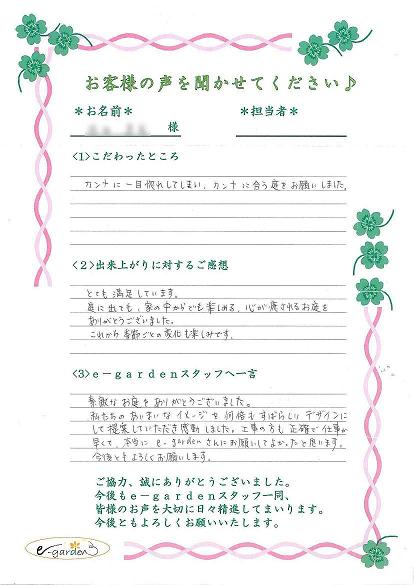 お客様の声を聞かせてください♪
*お名前* *担当者*
様
<1>こだわったところ
カンナに一目惚れしてしまい、カンナに合う庭をお願いしました。
<2>出来上がりに対するご感想
とても満足しています。
庭に出ても、家の中からでも楽しめる、心が癒されるお庭を
ありがとうございました。
これから季節ごとの変化も楽しみです。
<3>e-gardenスタッフへ一言
素敵なお庭をありがとうございました。
私たちのあいまいなイメージを何倍もすばらしいデザインに
して提案していただき感動しました。工事の方も正確で仕事が
早くて、本当にe-gardenさんにお願いしてよかったと思います。
今後ともよろしくお願いします。
ご協力、誠にありがとうございました。
今後もe-gardenスタッフ一同、
皆様のお声を大切に日々精進してまいります。
今後ともよろしくお願いいたします。
e-garden